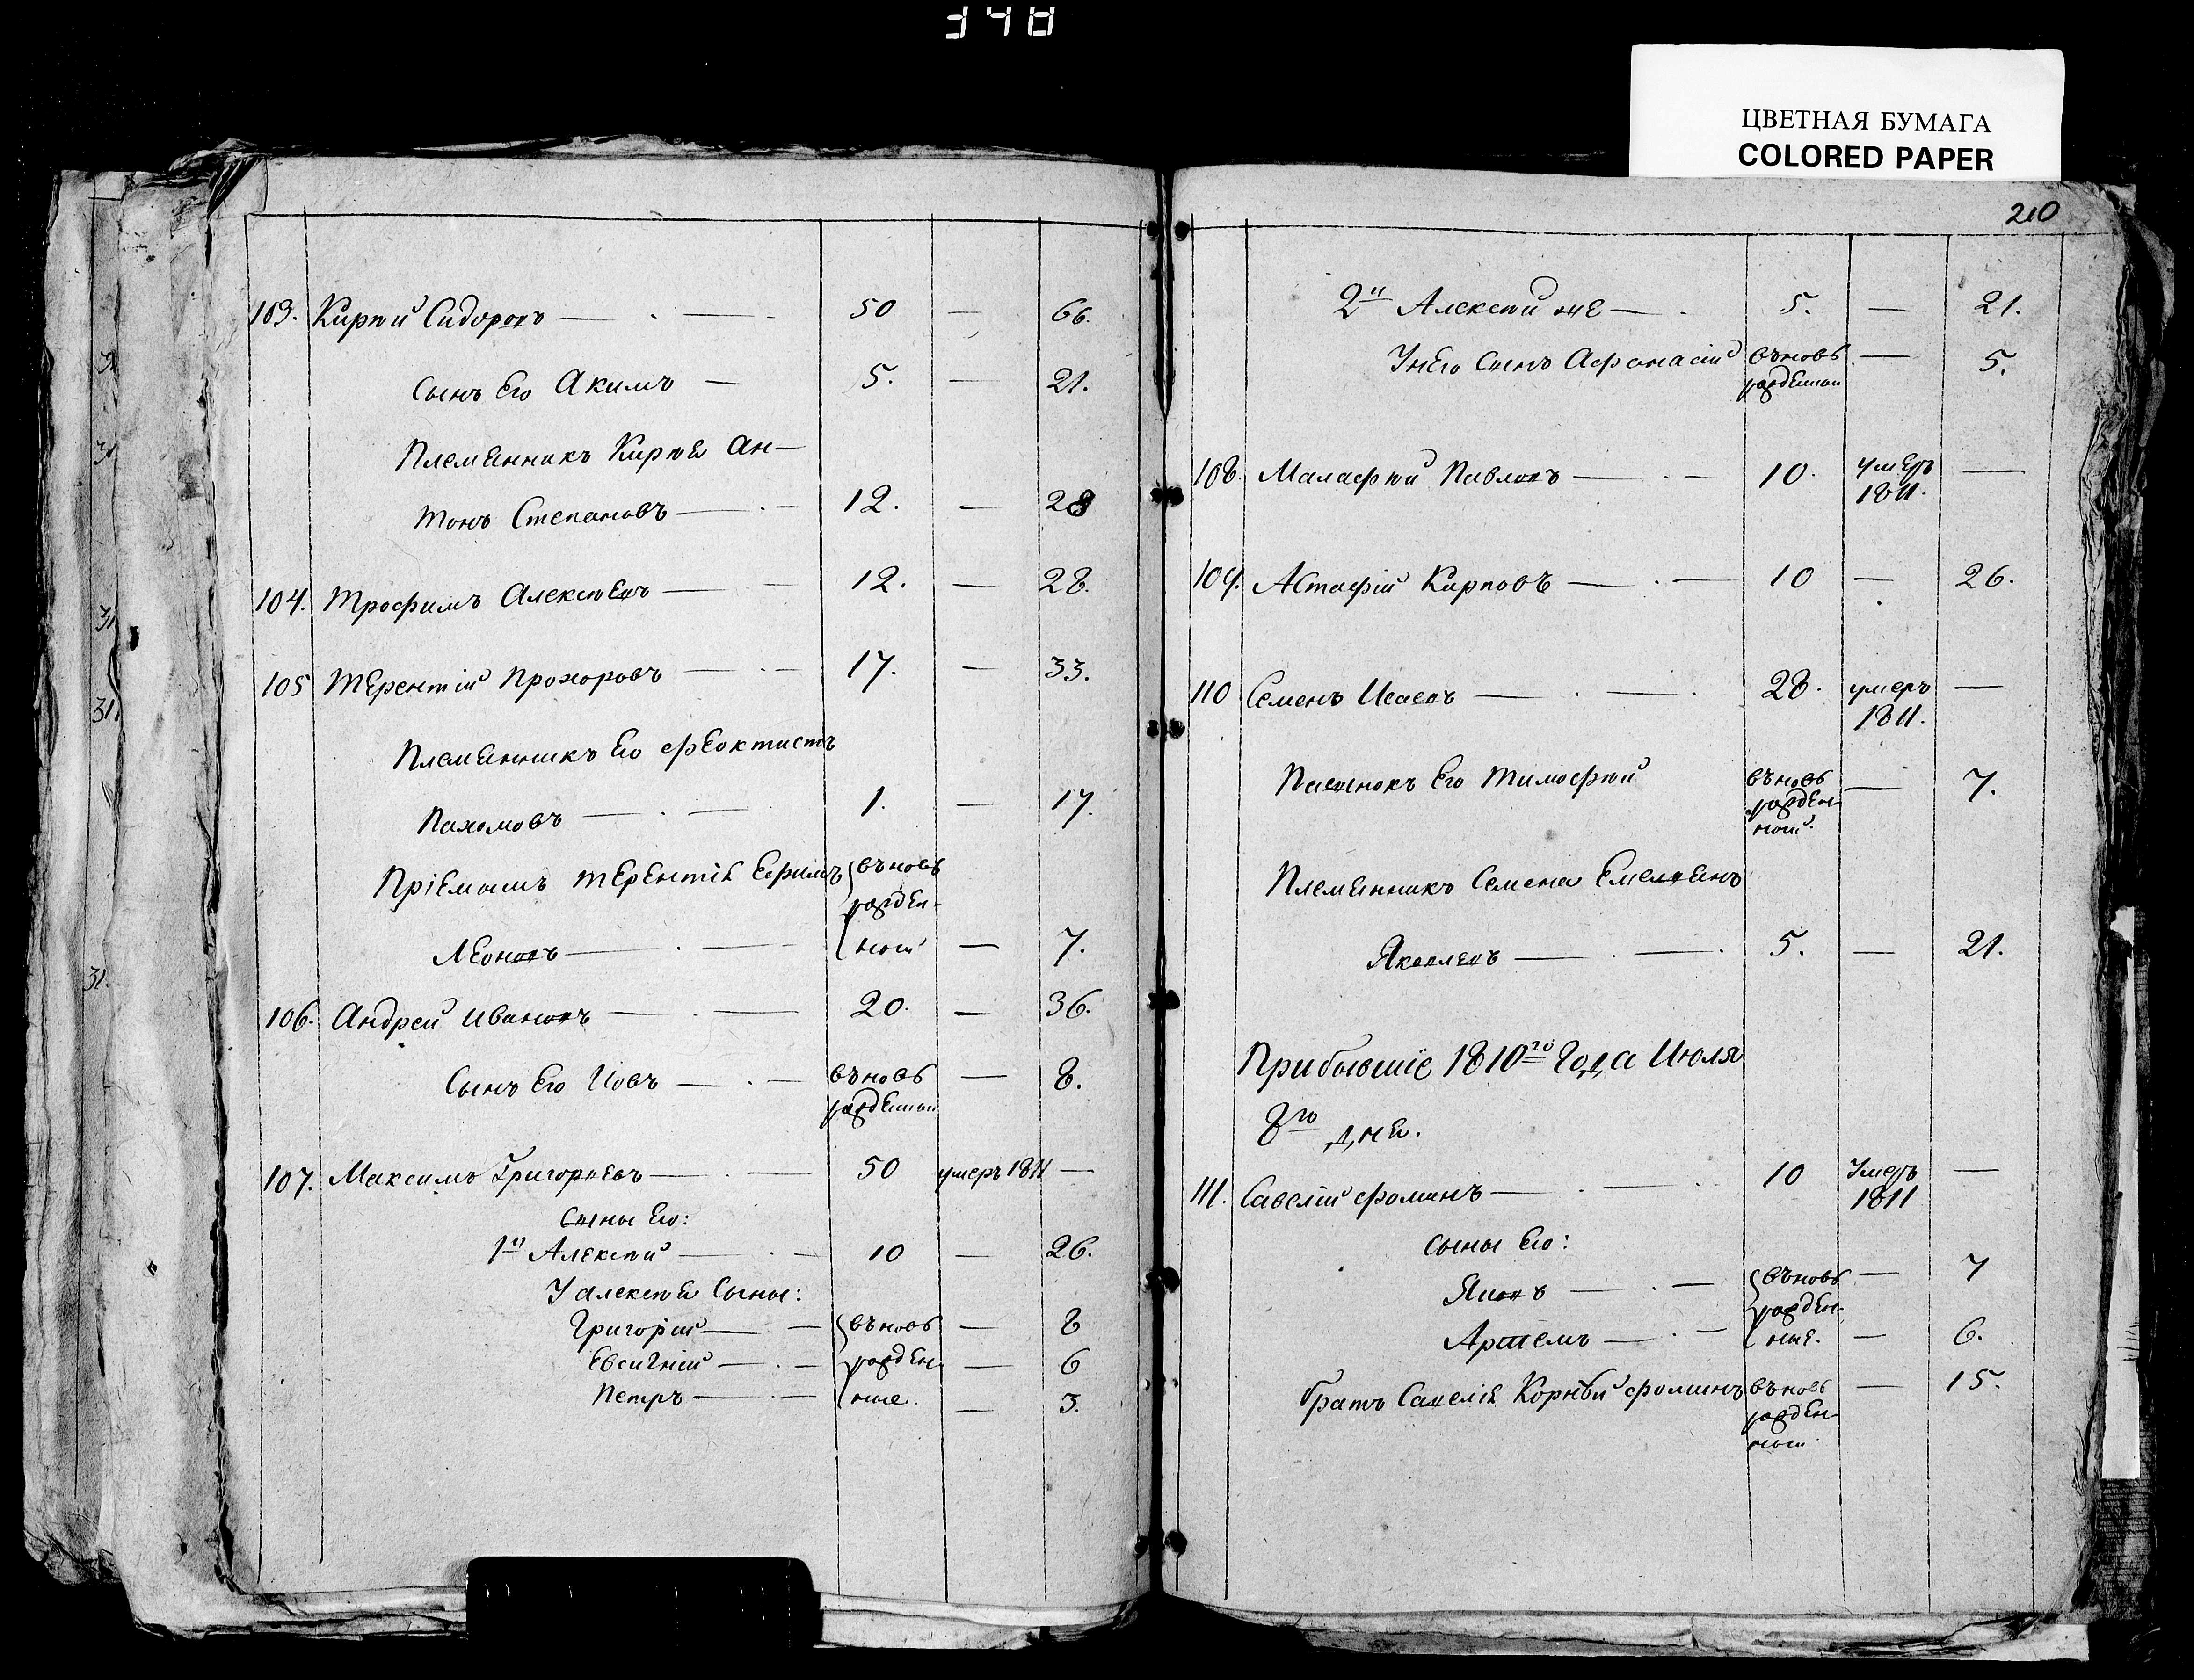 348
ЦВЕТНАЯ БУМАГА
COLORED PAPER
103. Кирѣй Сидоровъ — 50 — 66.
сынъ Его Акимъ — 5. — 21.
Племянникъ Кирѣя Ан-
тонъ Степановъ — 12. — 28
104. Трофимъ Алексѣевъ — 12. — 28.
105 Терентій Прохоровъ — 17. — 33.
Племянникъ Его Феоктистъ
Пахомовъ — 1. — 17.
Пріемышъ Терентія Ефимъ въновь
рожден-
Леоновъ — ной — 7.
106. Андрей Ивановъ — 20. — 36.
Сынъ Его Іовъ — въновь — 8.
рожденной
107. Максимъ Григорьевъ — 50 умеръ 1811 —
Сыны Его:
1й Алексѣй — 10 — 26.
У алексѣя Сыны:
Григорій — въновь — 8
Евсигній — рожден- — 6
Петръ — ные. — 3.
210
2й Алексѣй же — 5. — 21.
У него сынъ Афонасій въновь — 5.
рожденной
108. Малафѣй Павловъ — 10. умеръ —
1811.
109. Астафій Карповъ — 10 — 26.
110 Семенъ Исаевъ — 28. умеръ —
1811.
Пасынокъ Его Тимофѣй въновь — 7.
рожден-
ной.
Племянникъ Семена Емельянъ
Яковлевъ — 5. — 21.
Прибывшіе 1810го Года Июля
8го дня.
111. Савелій Фоминъ — 10 Умеръ —
1811
сыны Его:
Яковъ — въновь — 7
рожден-
Артемъ — ные. — 6.
братъ Савелія Корнѣй Фоминъ въновь — 15.
рожден-
ной
31
31
31
31.
31.